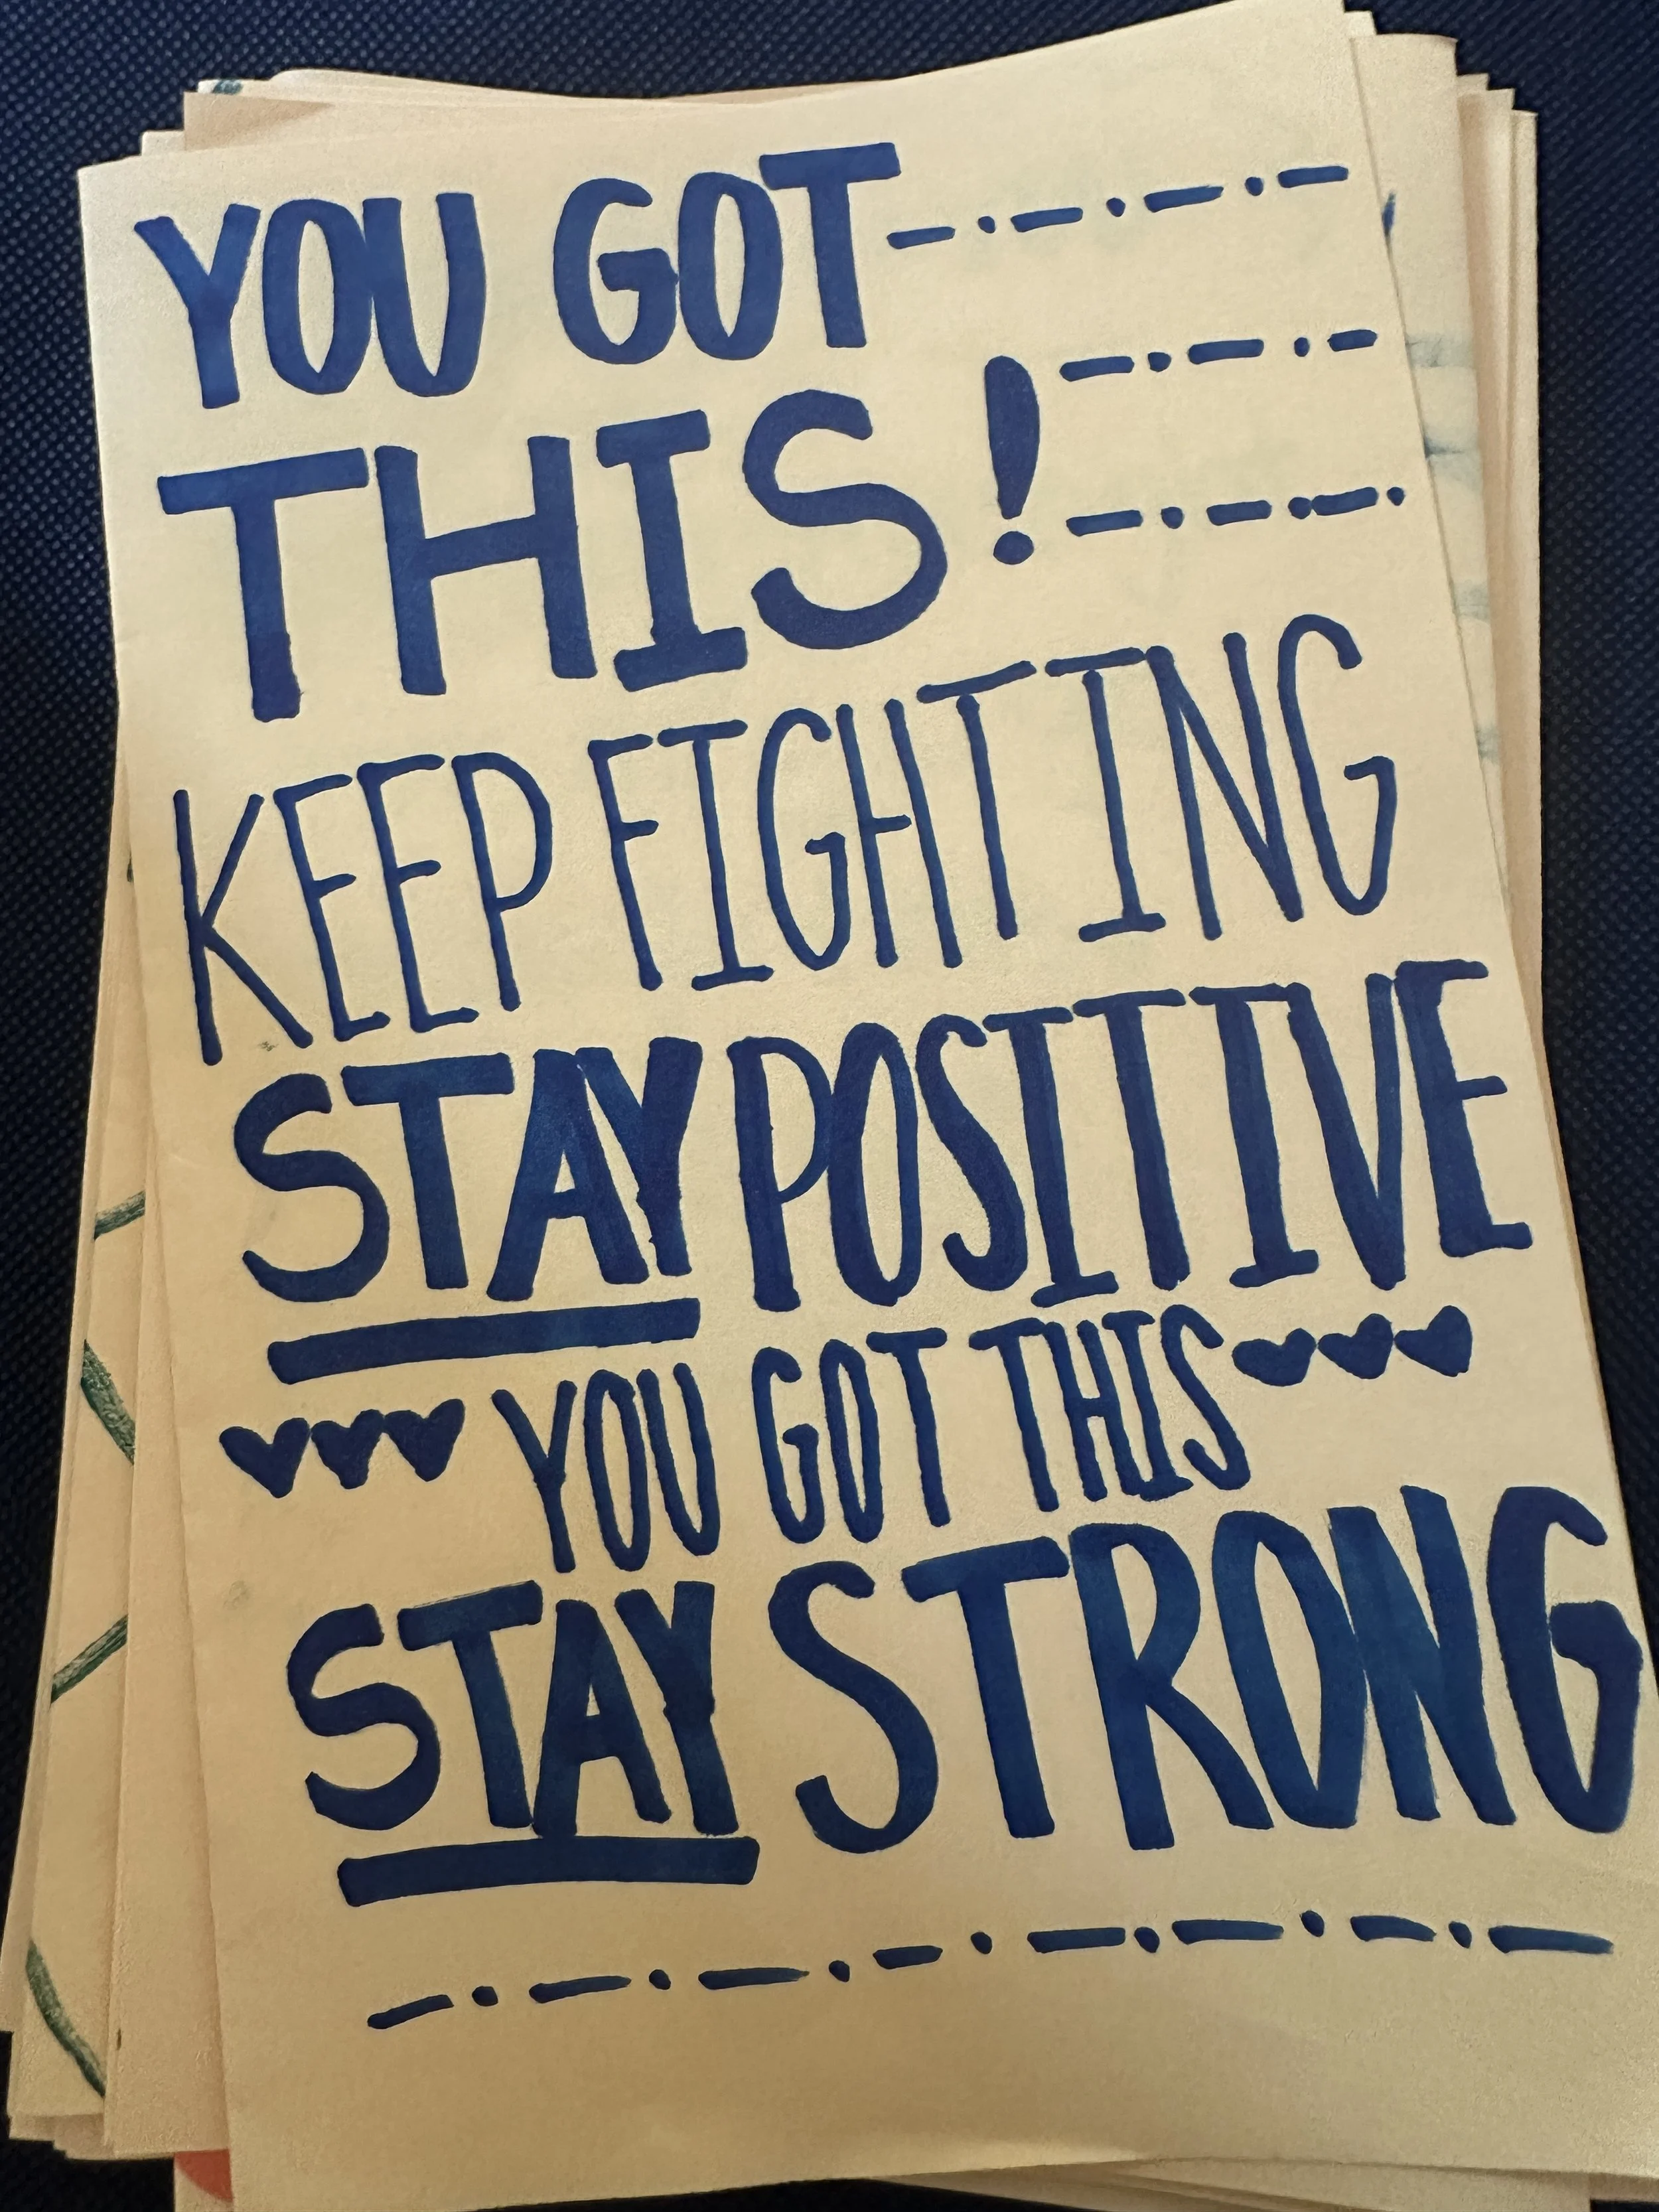 YOU GOT
THIS!
KEEP FIGHTING
STAY POSITIVE
YOU GOT THIS
STAY STRONG